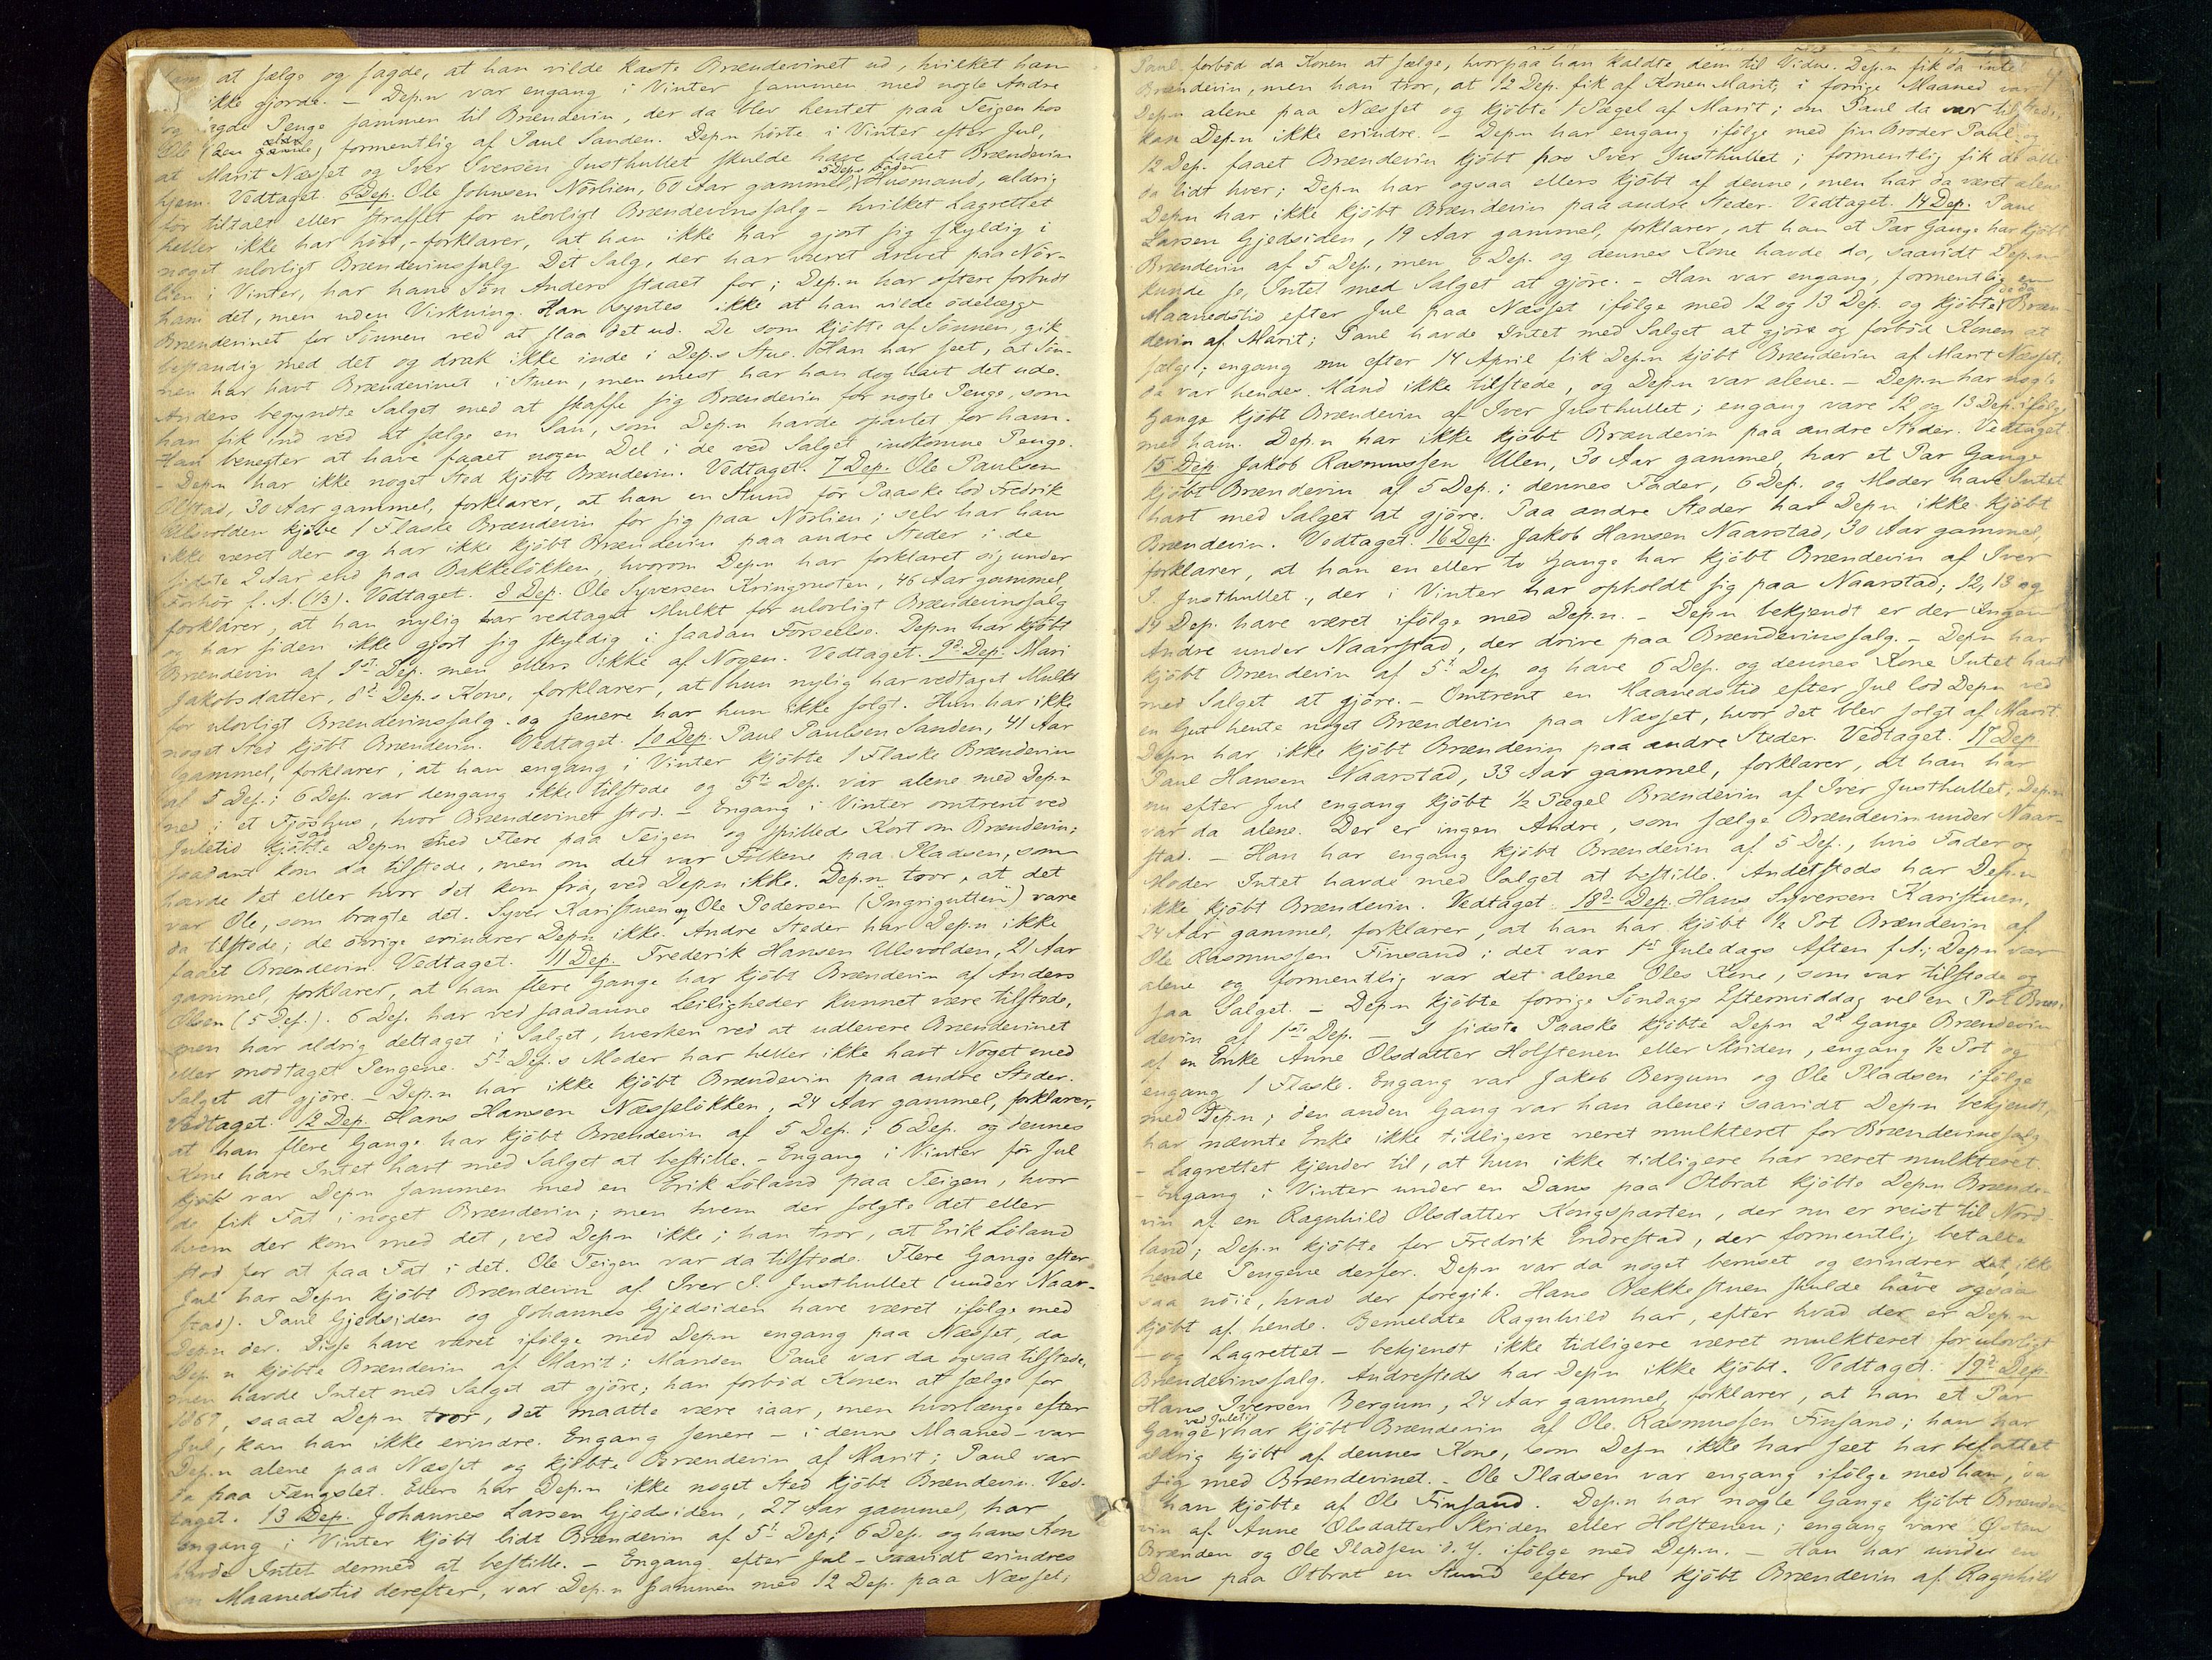 ham at sælge og sagde, at han vilde kaste Brændevinet ud, hvilket han
ikke gjorde. – Dep.n var engang i Vinter sammen med nogle Andre
og lagde Penge sammen til Brændevin, der da blev hentet paa Teigen hos
Ole (den ældre), formentlig af Paul Sanden. Dep.n hörte i Vinter efter Jul,
at Marit Næsset og Iver Iversen Justhullet skulde have faaet Brændevin
hjem. Vedtaget. 6 Dep. Ole Johnsen Nörlien, 60 Aar gammel, 5 Dep.s Fader Husmand, aldrig
för tiltalt eller straffet for ulovligt Brændevinssalg – hvilket Lagrettet
heller ikke har hört, – forklarer, at han ikke har gjort sig skyldig i
noget ulovligt Brændevinssalg. Det Salg, der har været drevet paa Nör-
lien i Vinter, har hans Sön Anders staaet for; Dep.n har oftere forbudt
ham det, men uden Virkning. Han syntes ikke at han vilde ödelægge
Brændevinet for Sönnen ved at slaa det ud. De som kjöbte af Sönnen, gik
bestandig med det og drak ikke inde i Dep.s Stue. Han har seet, at Sön-
nen har havt Brændevinet i Stuen, men mest har han dog havt det ude.
Anders begyndte Salget med at skaffe sig Brændevin for nogle Penge, som
han fik ind ved at sælge en Sau, som Dep.n havde opavlet for ham.
Han benegter at have faaet nogen Del i de ved Salget indkomne Penge.
– Dep.n har ikke noget Sted kjöbt Brændevin. Vedtaget. 7 Dep. Ole Paulsen
Olstad, 30 Aar gammel, forklarer, at han en Stund för Paaske lod Fredrik
Ulsvolden kjöbe 1 Flaske Brændevin for sig paa Nörlien; selv har han
ikke været der og har ikke kjöbt Brændevin paa andre Steder i de
sidste 2 Aar end paa Bakkelökken, hvorom Dep.n har forklaret sig under
Forhör f. A. (1/3). Vedtaget. 8 Dep. Ole Syversen Kringrusten, 46 Aar gammel,
forklarer, at han nylig har vedtaget Mulkt for ulovligt Brændevinssalg
og har siden ikke gjort sig skyldig i saadan Forseelse. Dep.n har kjöbt
Brændevin af 1st Dep. men ellers ikke af Nogen. Vedtaget. 9d Dep. Mari
Jakobsdatter, 8d Dep.s Kone, forklarer, at hun nylig har vedtaget Mulkt
for ulovligt Brændevinssalg og senere har hun ikke solgt. Hun har ikke
noget Sted kjöbt Brændevin. Vedtaget. 10 Dep. Paul Paulsen Sanden, 41 Aar
gammel, forklarer, at han engang i Vinter kjöbte 1 Flaske Brændevin
af 5 Dep.; 6 Dep. var dengang ikke tilstede og 5t Dep. var alene med Dep.n
ned i et Fjöshus, hvor Brændevinet stod. – Engang i Vinter omtrent ved
Juletid sad Dep.n med Flere paa Teigen og spillede Kort om Brændevin;
saadant kom da tilstede, men om det var Folkene paa Pladsen, som
havde det eller hvor det kom fra, ved Dep.n ikke. Dep.n tror, at det
var Ole, som bragte det. Syver Karistuen og Ole Pedersen ("Ingrigutten") vare
da tilstede; de övrige erindrer Dep.n ikke. Andre Steder har Dep.n ikke
faaet Brændevin. Vedtaget. 11 Dep. Frederik Hansen Ulsvolden, 21 Aar
gammel, forklarer, at han flere Gange har kjöbt Brændevin af Anders
Olsen (5 Dep.). 6 Dep. har ved saadanne Leiligheder kunnet være tilstede,
men har aldrig deltaget i Salget, hverken ved at udlevere Brændevinet
eller modtaget Pengene. 5t Dep.s Moder har heller ikke havt Noget med
Salget at gjöre. – Dep.n har ikke kjöbt Brændevin paa andre Steder.
Vedtaget. 12 Dep. Hans Hansen Næsselökken, 24 Aar gammel, forklarer,
at han flere Gange har kjöbt Brændevin af 5 Dep.; 6 Dep. og dennes
Kone have Intet havt med Salget at bestille. – Engang i Vinter för Jul
var Dep.n sammen med en Erik Löland paa Teigen, hvor
de fik Fat i noget Brændevin; men hvem der solgte det eller
hvem der kom med det, ved Dep.n ikke; han tror, at Erik Löland
stod for at faa Fat i det. Ole Teigen var da tilstede. Flere Gange efter
Jul har Dep.n kjöbt Brændevin af Iver I. Justhullet (under Naar-
stad). Paul Gjedsiden og Johannes Gjedsiden have været ifölge med
Dep.n der. Disse have været ifölge med Dep.n engang paa Næsset, da
Dep.n kjöbte Brændevin af Marit; Manden Paul var da ogsaa tilstede,
men havde Intet med Salget at gjöre; han forböd Konen at sælge for
1867, saaat Dep.n tror, det maatte være iaar, men hvorlænge efter
Jul, kan han ikke erindre. Engang senere – i denne Maaned – var
Dep.n alene paa Næsset og kjöbte Brændevin af Marit; Paul var
da paa Fængslet. Ellers har Dep.n ikke noget Sted kjöbt Brændevin. Ved-
taget. 13 Dep. Johannes Larsen Gjedsiden, 27 Aar gammel, har
engang i Vinter kjöbt lidt Brændevin af 5t Dep.; 6 Dep. og hans Kon
havde Intet dermed at bestille. – Engang efter Jul – saavidt erindres
en Maanedstid derefter, var Dep.n sammen med 12 Dep. paa Næsset;
Paul forböd da Konen at sælge, hvorpaa han kaldte dem til Vidne. Dep.n fik da intet
Brændevin, men han tror, at 12 Dep. fik af Konen Marit; i forrige Maaned var
Dep.n alene paa Næsset og kjöbte 1 Pægel af Marit; om Paul da var tilstede,
kan Dep.n ikke erindre. – Dep.n har engang ifölge med sin Broder Paul og
12 Dep. faaet Brændevin kjöbt hos Iver Justhullet; formentlig fik de alle
da lidt hver; Dep.n har ogsaa ellers kjöbt af denne, men har da været alene.
Dep.n har ikke kjöbt Brændevin paa andre Steder. Vedtaget. 14 Dep. Paul
Larsen Gjedsiden, 19 Aar gammel, forklarer, at han et Par Gange har kjöbt
Brændevin af 5 Dep., men 6 Dep. og dennes Kone havde da, saavidt Dep.n
kunde se, Intet med Salget at gjöre. – Han var engang, formentlig en
Maanedstid efter Jul paa Næsset ifölge med 12 og 13 Dep. og kjöbte de da Bræn-
devin af Marit; Paul havde Intet med Salget at gjöre og forböd Konen at
sælge; engang nu efter 14 April fik Dep.n kjöbt Brændevin af Marit Næsset,
da var hendes Mand ikke tilstede, og Dep.n var alene. – Dep.n har nogle
Gange kjöbt Brændevin af Iver Justhullet; engang vare 12 og 13 Dep. ifölge
med ham. Dep.n har ikke kjöbt Brændevin paa andre Steder. Vedtaget.
15 Dep. Jakob Rasmussen Ulen, 30 Aar gammel, har et Par Gange
kjöbt Brændevin af 5 Dep.; dennes Fader, 6 Dep. og Moder have Intet
havt med Salget at gjöre. Paa andre Steder har Dep.n ikke kjöbt
Brændevin. Vedtaget. 16 Dep. Jakob Hansen Naarstad, 30 Aar gammel,
forklarer, at han en eller to Gange har kjöbt Brændevin af Iver
I. Justhullet, der i Vinter har opholdt sig paa Naarstad; 12, 13 og
14 Dep. have været ifölge med Dep.n. – Dep.n bekjendt er der Ingen
Andre under Naarstad, der drive paa Brændevinssalg. – Dep.n har
kjöbt Brændevin af 5t Dep. og have 6 Dep. og dennes Kone Intet havt
med Salget at gjöre. – Omtrent en Maanedstid efter Jul lod Dep.n ved
en Gut hente noget Brændevin paa Næsset, hvor det blev solgt af Marit.
Dep.n har ikke kjöbt Brændevin paa andre Steder. Vedtaget. 17 Dep.
Paul Hansen Naarstad, 33 Aar gammel, forklarer, at han har
nu efter Jul engang kjöbt ½ Pægel Brændevin af Iver Justhullet, Dep.n
var da alene. Der er ingen Andre, som sælge Brændevin under Naar-
stad. – Han har engang kjöbt Brændevin af 5 Dep., hvis Fader og
Moder Intet havde med Salget at bestille. Andetsteds har Dep.n
ikke kjöbt Brændevin. Vedtaget. 18d Dep. Hans Syversen Karistuen,
24 Aar gammel, forklarer, at han har kjöbt ½ Pot Brændevin af
Ole Rasmussen Finsand; det var 1st Juledags Aften f. A.; Dep.n var
alene og formentlig var det alene Oles Kone, som var tilstede og
saa Salget. – Dep.n kjöbte forrige Söndags Eftermiddag vel en Pot Bræn-
devin af 1ste Dep. – I sidste Paaske kjöbte Dep.n 2d Gange Brændevin
af en Enke Anne Olsdatter Holstenen eller Skriden, engang ½ Pot og
engang 1 Flaske. Engang var Jakob Bergum og Ole Pladsen ifölge
med Dep.n; den anden Gang var han alene; saavidt Dep.n bekjendt,
har nævnte Enke ikke tidligere været mulkteret for Brændevinssalg.
– Lagrettet kjender til, at hun ikke tidligere har været mulkteret.
– Engang i Vinter under en Dans paa Otbrat kjöbte Dep.n Brænde-
vin af en Ragnhild Olsdatter Kongsparten, der nu er reist til Nord-
land; Dep.n kjöbte for Fredrik Endrestad, der formentlig betalte
hende Pengene derfor. Dep.n var da noget beruset og erindrer det ikke
saa nöie, hvad der foregik. Hans Bækkestuen skulde have ogsaa
kjöbt af hende. Bemeldte Ragnhild har, efter hvad der er Dep.n
– og Lagrettet – bekjendt ikke tidligere været mulkteret for ulovligt
Brændevinssalg. Andresteds har Dep.n ikke kjöbt. Vedtaget. 19d Dep.
Hans Iversen Bergum, 24 Aar gammel, forklarer, at han et Par
Gange ved Juletid har kjöbt Brændevin af Ole Rasmussen Finsand; han har
aldrig kjöbt af dennes Kone, som Dep.n ikke har seet har befattet
sig med Brændevinet. – Ole Pladsen var engang ifölge med ham, da
han kjöbte af Ole Finsand. Dep.n har nogle Gange kjöbt Brænde-
vin af Anne Olsdatter Skriden eller Holstenen; engang vare Østen
Brænden og Ole Pladsen d. y. ifölge med Dep.n. – Han har under en
Dans paa Otbrat en Stund efter Jul kjöbt Brændevin af Ragnhild